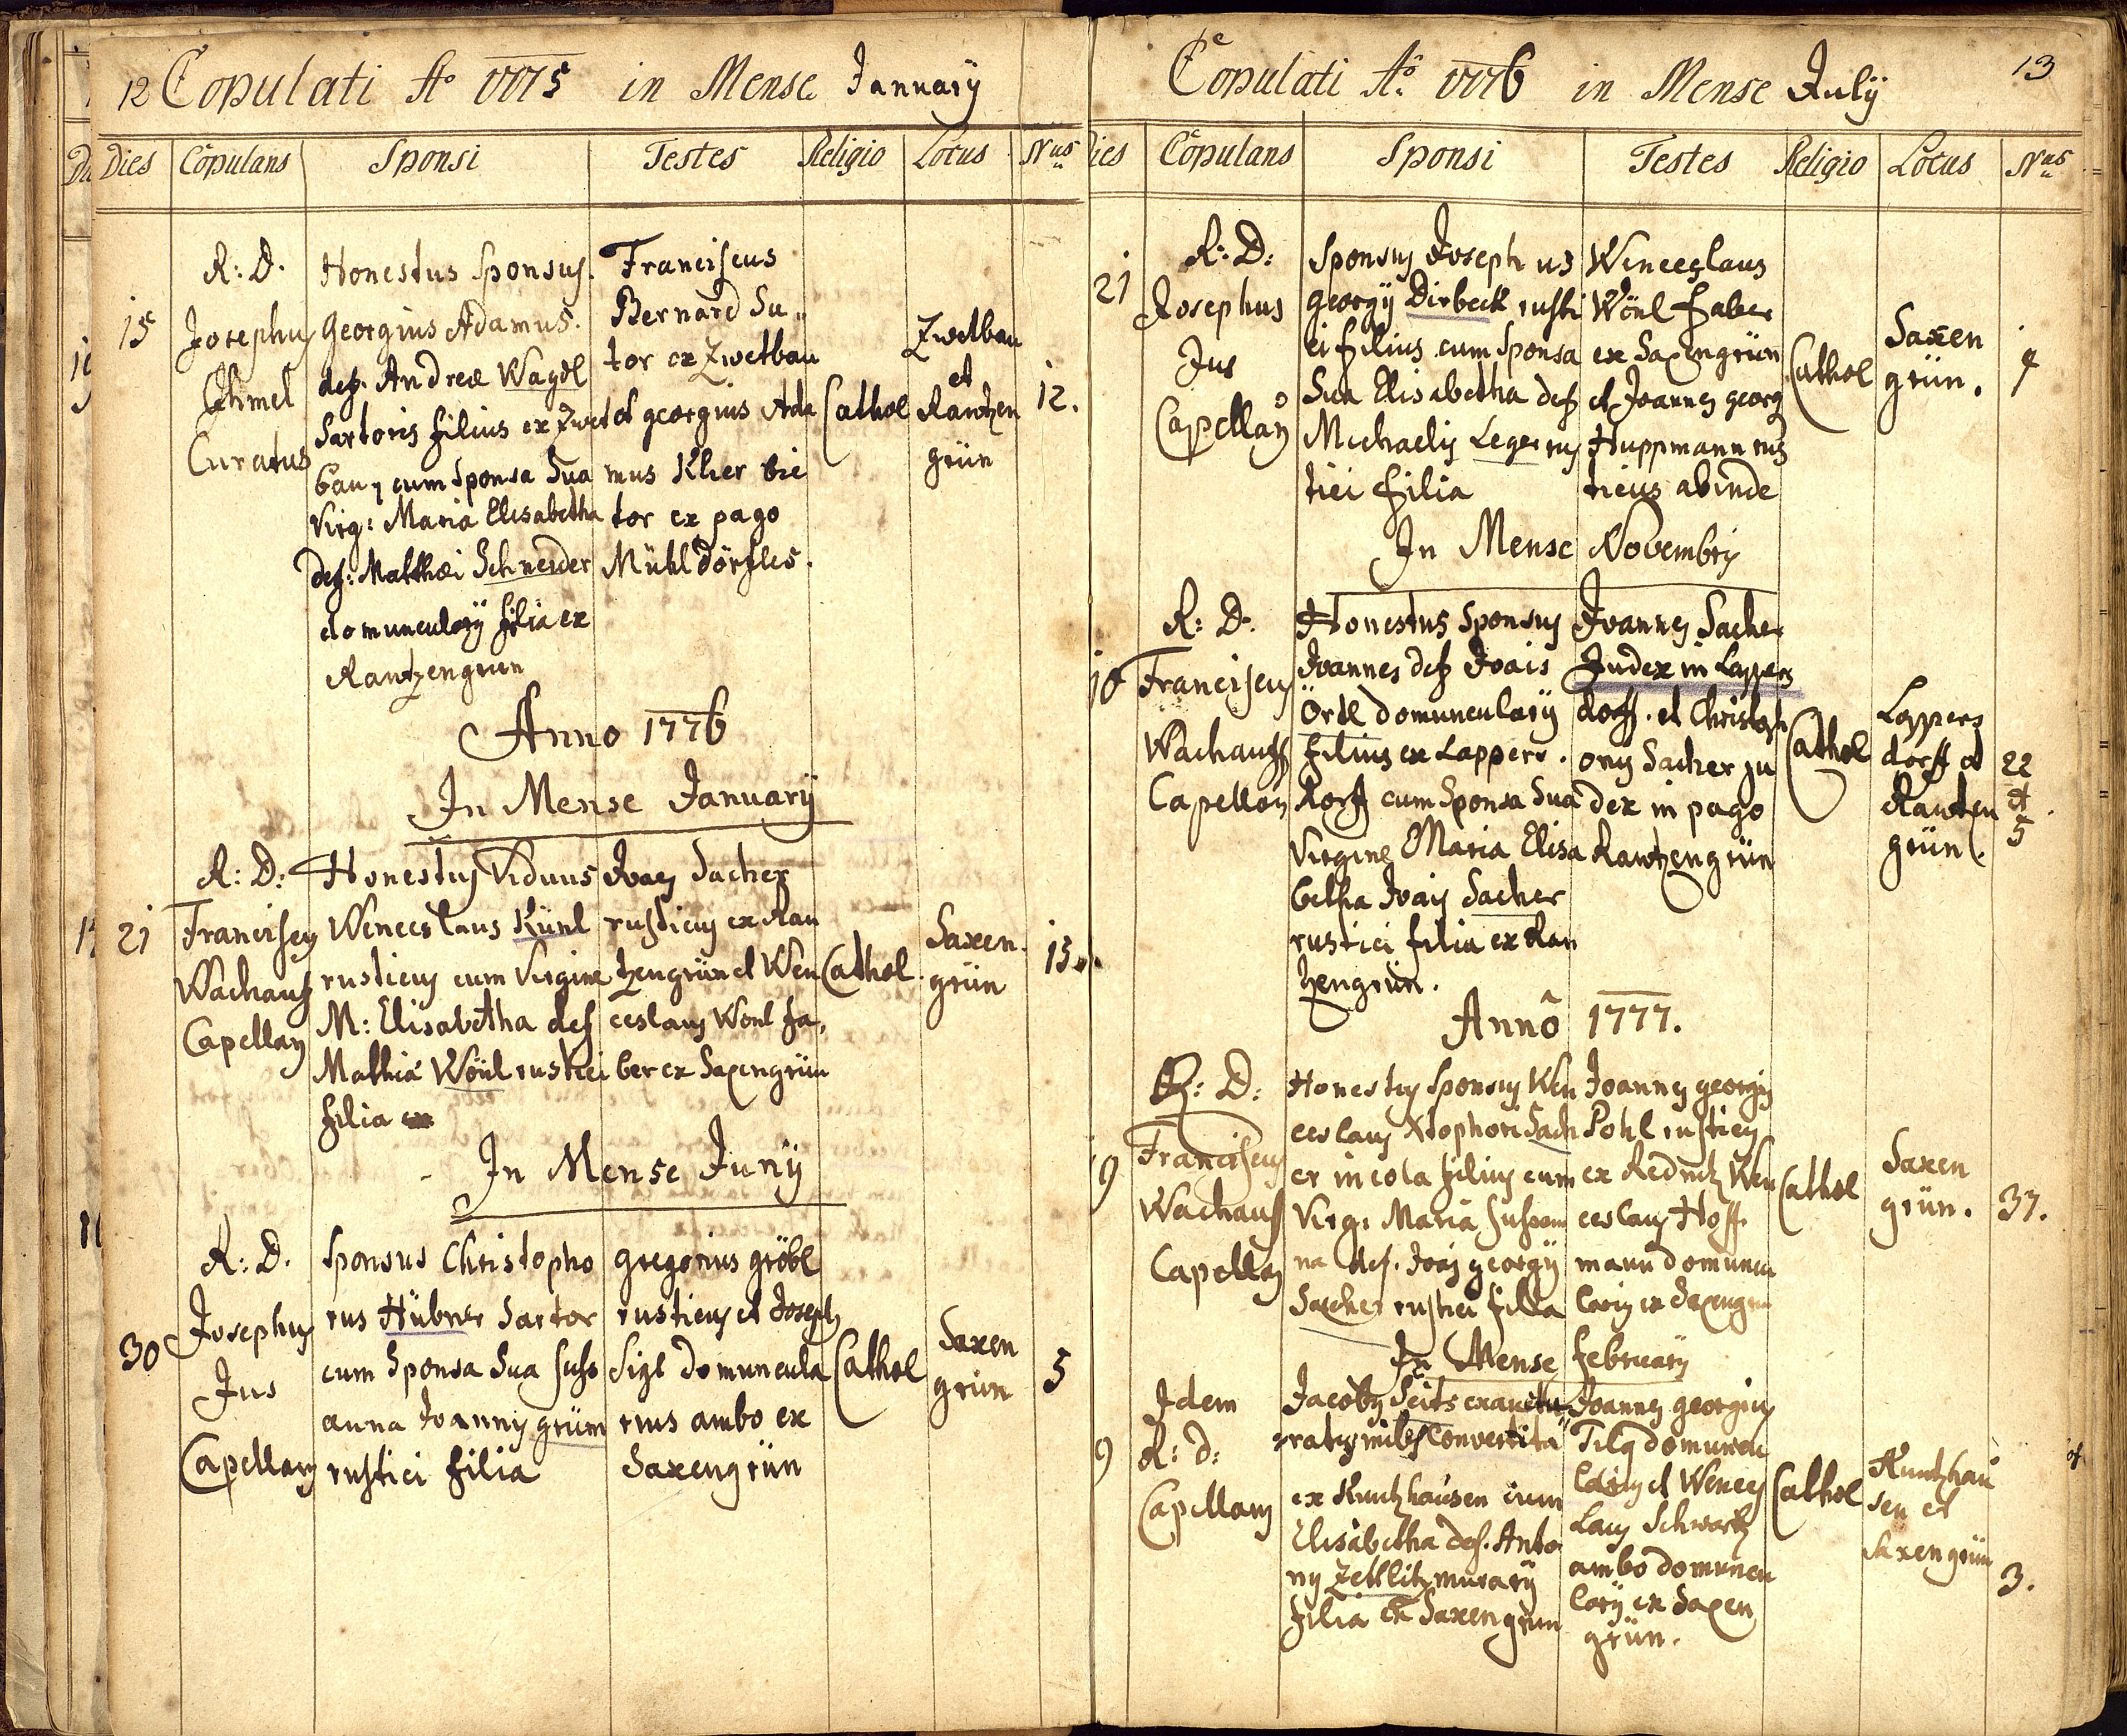 12 Copulati Aº 1775 in Mense Januarÿ
Dies Copulans Sponsi Testes Religio Locus Nus
R: D.
Josephus
Ihmel
Curatus
15
Honestus Sponsus.
Georgius Adamus.
def. Andreæ Wagdl
Sartoris filius ex Zwet
bau, cum Sponsa Sua
Virg: Maria Elisabetha
def: Matthæi Schneider
domuncularÿ filia ex
Rantzengrün
Franciscus
Bernard Su„
tor ex Zwetbau
et georgius Ada
mus Klier vie
tor ex pago
Mühldörfles.
Cathol
Zwetbau
et
Rantzen
grün
12.
Anno 1776
In Mense Januarÿ
21
R: D:
Franciscus
Wachauf
Capellan
Honestus Viduus
Wenceslaus Künl
rusticus cum Virgine
M: Elisabetha def
Mathiæ Wönl rustici
filia
Joan Sacher
rusticus ex Ran
tzengrün et Wen
ceslaus Wönl fa„
ber ex Saxengrün
Cathol.
Saxen.
grün
13.
In Mense Junÿ
30
R: D.
Josephus
Jus
Capellany
Sponsus Christopho
rus Hübner Sartor
cum Sponsa Sua Suss
anna Joannis grüm
rustici filia
gregorius gröbl
rusticus et Joseph
Sigl domuncula
rius ambo ex
Saxengrün
Cathol
Saxen
grün
5
Copulati Aº. 1776 in Mense Julÿ 13
Dies Copulans Sponsi Testes Religio Locus Nus
21
R: D:
Josephus
Jus
Capellan
Sponsus Joseph us
Georgÿ Dirbeck rusti
ci filius cum Sponsa
Sua Elisabetha def
Michaelis Leger rus
tici filia
Wenceslaus
Wönl faber
ex Saxengrün
et Joannes georg
Huppmann rus
ticus abinde
Cathol
Saxen
grün.
In Mense Novembris
R: D.
Franciscus
Wachauff
Capellan
Honestus Sponsus
Joannes def Joais
Ördl domuncularÿ
filius ex Lappers.
dorff cum Sponsa Sua
Virgine Maria Elisa
betha Joais Sacher
rustici filia ex Ran
tzengrün.
Joannes Sacher
Judex in Lappers
dorff. et Christoph
orus Sacher Ju
dex in pago
Rantzengrün
Cathol
Lappers
dorff et
Rantzen
grün.
22
et
5
Anno 1777.
9
R: D:
Franciscus
Wachauf
Capellan
Honestus Sponsus Wen
ceslaus Xtophori Sach
er incola filius cum
Virg: Maria Susan
na def. Joais georgÿ
Sacher rustici filia
Joannes georgius
Pohl rusticus
ex Rednitz Wen
ceslaus Hoff
mann domuncu
larius ex Saxengrün
Cathol
Saxen
grün.
37.
In Mense februarÿ
9
Idem
R: D:
Capellany
Jacobus Seits exauctu
ratus miles Convertita
ex Kuntzhausen cum
Elisabetha def. Anto
nÿ Zettlitz murarÿ
filia ex Saxengrün
Joannes georgius
Tilg domuncu
larius et Wences
laus Schwartz
ambo domuncu
larÿ ex Saxen
grün.
Cathol
Kuntzhau
sen et
Saxengrün
3.